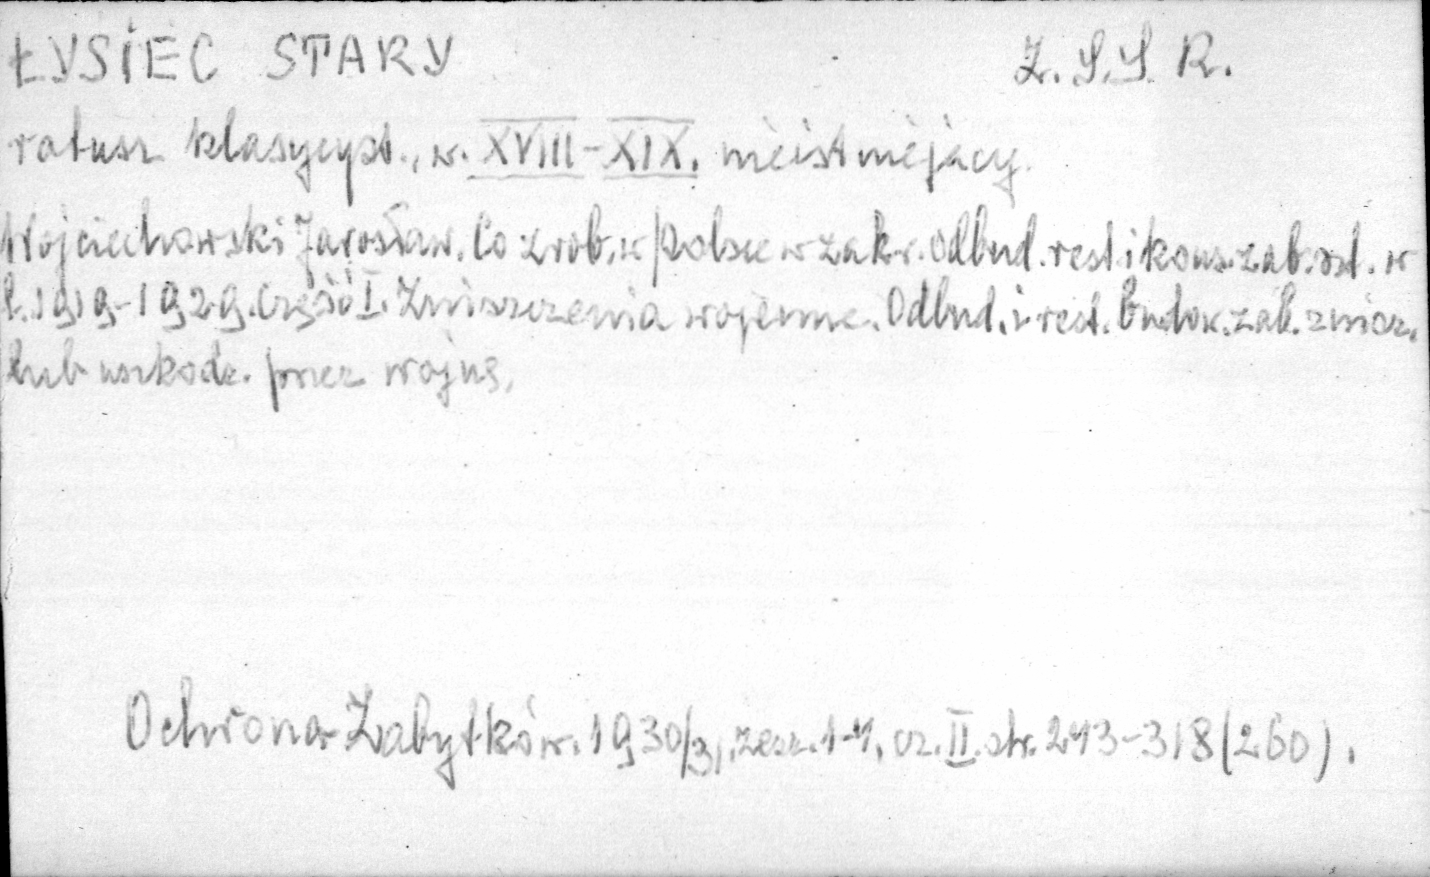 ŁYSIEC STARY Z.S.S.R.
ratusz klasycyst., w. XVIII-XIX. nieistniejący.
Wojciechowski Jarosław. Co zrob. w Polsce w zakr. odbud. rest. i kons. zab. szt. w
l. 1919-1929. Część I. Zniszczenia wojenne. Odbud. i rest. budow. zab. zniszcz.
lub uszkodz. przez wojnę,
Ochrona Zabytków. 1930/31, zesz. 1-4, cz. II. str. 243-318 (260).